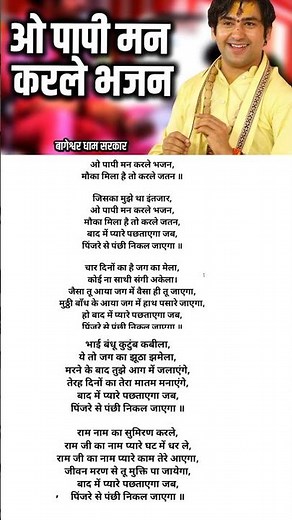 ओ पापी मन
करले भजन
बागेश्वर धाम सरकार
ओ पापी मन करले भजन,
मौका मिला है तो करले जतन ॥
जिसका मुझे था इंतजार,
ओ पापी मन करले भजन,
मौका मिला है तो करले जतन,
बाद में प्यारे पछताएगा जब,
पिंजरे से पंछी निकल जाएगा ॥
चार दिनों का है जग का मेला,
कोई ना साथी संगी अकेला।
जैसा तू आया जग में वैसा ही तू जाएगा,
मुठ्ठी बाँध के आया जग में हाथ पसारे जाएगा,
हो बाद में प्यारे पछताएगा जब,
पिंजरे से पंछी निकल जाएगा ॥
भाई बंधू कुटुंब कबीला,
ये तो जग का झूठा झमेला,
मरने के बाद तुझे आग में जलाएंगे,
तेरह दिनों का तेरा मातम मनाएंगे,
बाद में प्यारे पछताएगा जब,
पिंजरे से पंछी निकल जाएगा ॥
राम नाम का सुमिरण करले,
राम जी का नाम प्यारे घट में धर ले,
राम जी का नाम प्यारे काम तेरे आएगा,
जीवन मरण से तू मुक्ति पा जायेगा,
बाद में प्यारे पछताएगा जब,
पिंजरे से पंछी निकल जाएगा ॥